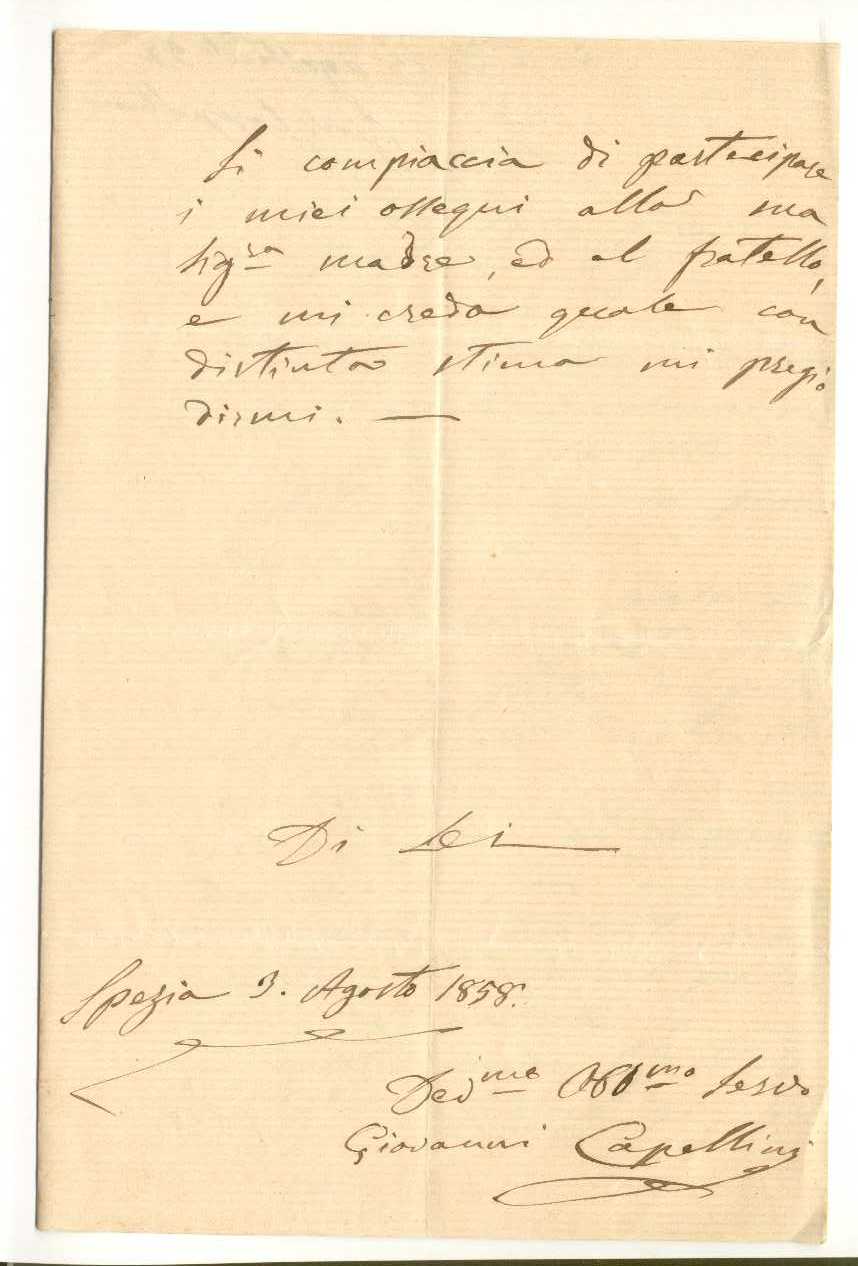 Si compiaccia di partecipare
i miei ossequi alla sua
sig.ra madre, ed al fratello,
e mi creda quale con
distinta stima mi pregio
dirmi. —
Di Lei
Spezia 3. Agosto 1858.
Dev.mo Obb.mo Servo
Giovanni Capellini